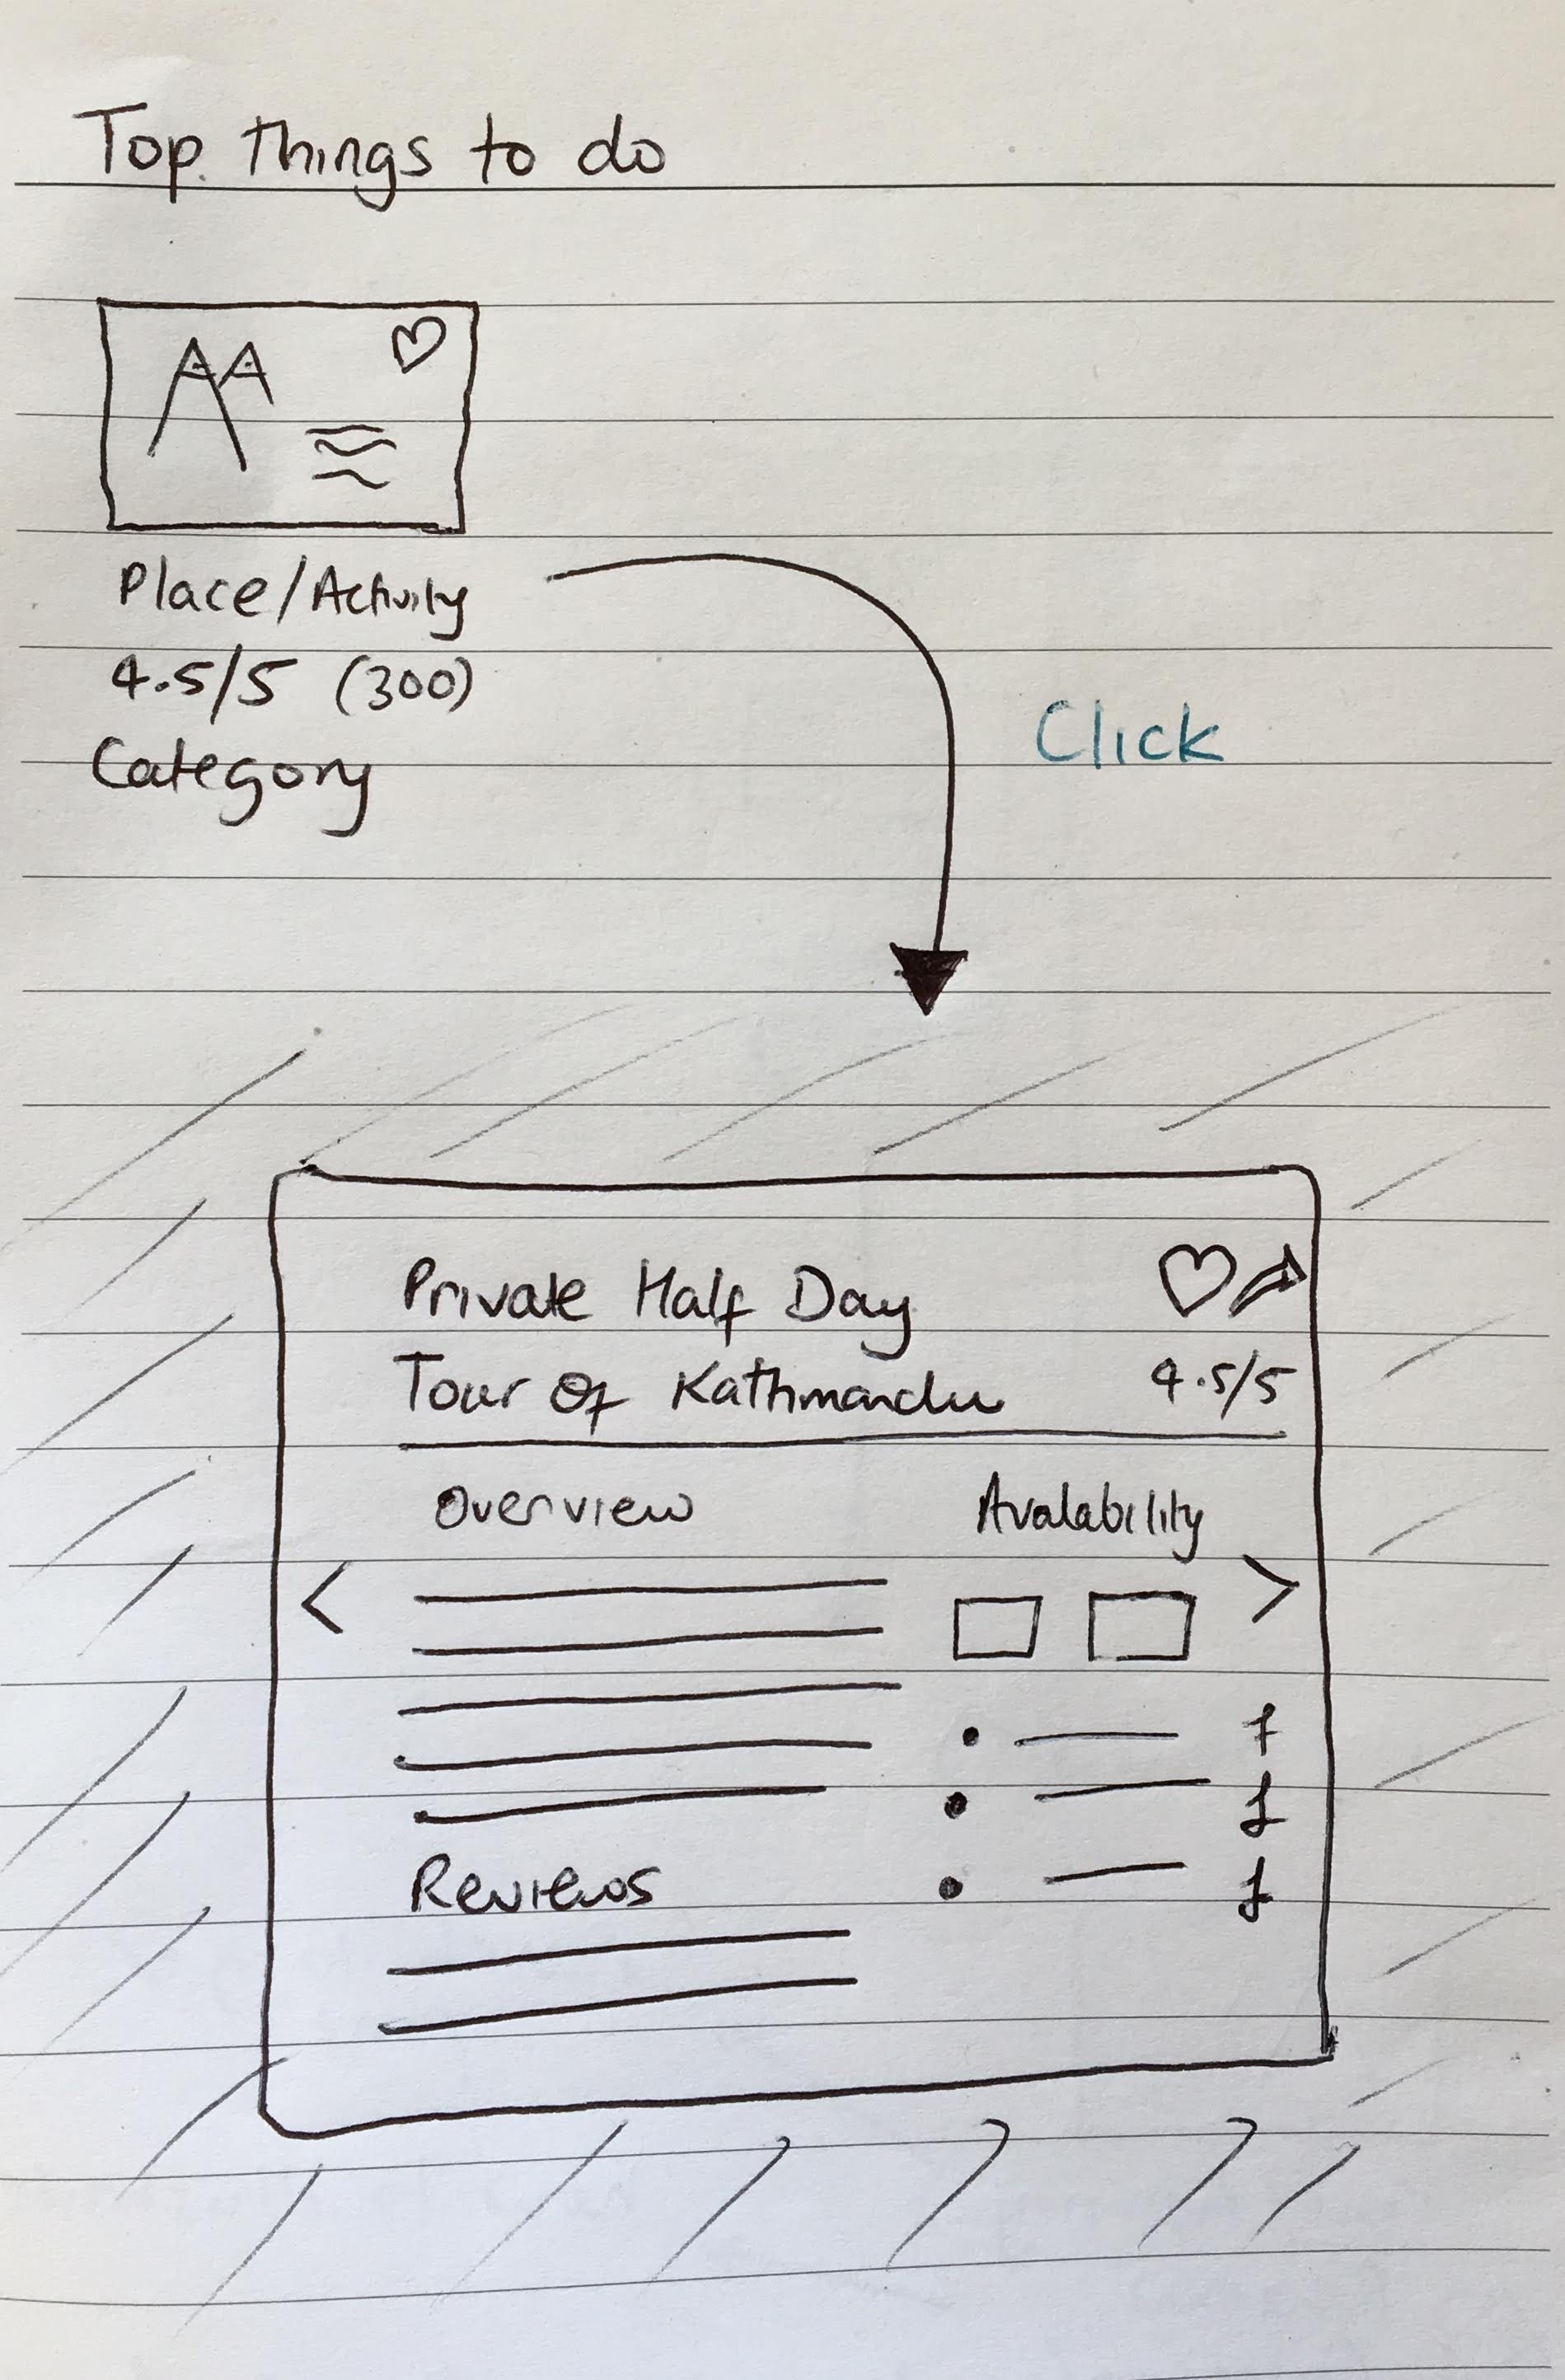 Top things to do
Place/Activity
4.5/5 (300)
Category
Click
Private Half Day
Tour of Kathmandu
4.5/5
Overview
Avalability
<
>
£
£
£
Reviews